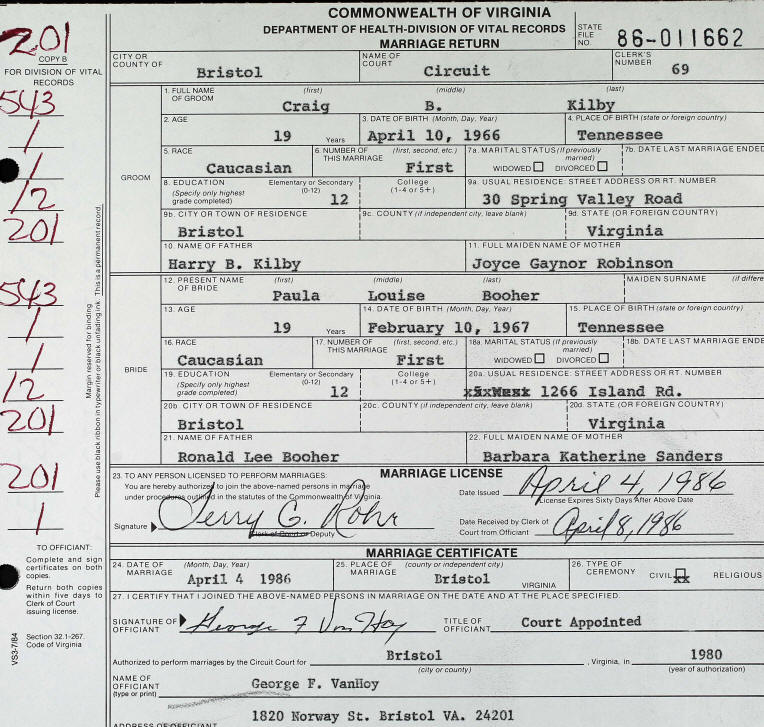 COMMONWEALTH OF VIRGINIA
DEPARTMENT OF HEALTH-DIVISION OF VITAL RECORDS
MARRIAGE RETURN
STATE FILE NO. 86-011662
201
COPY B
FOR DIVISION OF VITAL RECORDS
CITY OR COUNTY OF Bristol NAME OF COURT Circuit CLERK'S NUMBER 69
543
1
1
12
201
GROOM
1. FULL NAME OF GROOM (first) (middle) (last)
Craig B. Kilby
2. AGE 3. DATE OF BIRTH (Month, Day, Year) 4. PLACE OF BIRTH (state or foreign country)
19 Years April 10, 1966 Tennessee
5. RACE 6. NUMBER OF THIS MARRIAGE (first, second, etc.) 7a. MARITAL STATUS (If previously married) 7b. DATE LAST MARRIAGE ENDED
Caucasian First WIDOWED DIVORCED
8. EDUCATION (Specify only highest grade completed) Elementary or Secondary (0-12) College (1-4 or 5+) 9a. USUAL RESIDENCE: STREET ADDRESS OR RT. NUMBER
12 30 Spring Valley Road
9b. CITY OR TOWN OF RESIDENCE 9c. COUNTY (if independent city, leave blank) 9d. STATE (OR FOREIGN COUNTRY)
Bristol Virginia
10. NAME OF FATHER 11. FULL MAIDEN NAME OF MOTHER
Harry B. Kilby Joyce Gaynor Robinson
543
1
1
12
201
Margin reserved for binding
Please use black ribbon in typewriter or black unfading ink. This is a permanent record.
BRIDE
12. PRESENT NAME OF BRIDE (first) (middle) (last) MAIDEN SURNAME (if differe
Paula Louise Booher
13. AGE 14. DATE OF BIRTH (Month, Day, Year) 15. PLACE OF BIRTH (state or foreign country)
19 Years February 10, 1967 Tennessee
16. RACE 17. NUMBER OF THIS MARRIAGE (first, second, etc.) 18a. MARITAL STATUS (If previously married) 18b. DATE LAST MARRIAGE ENDE
Caucasian First WIDOWED DIVORCED
19. EDUCATION (Specify only highest grade completed) Elementary or Secondary (0-12) College (1-4 or 5+) 20a. USUAL RESIDENCE: STREET ADDRESS OR RT. NUMBER
12 1266 Island Rd.
20b. CITY OR TOWN OF RESIDENCE 20c. COUNTY (if independent city, leave blank) 20d. STATE (OR FOREIGN COUNTRY)
Bristol Virginia
21. NAME OF FATHER 22. FULL MAIDEN NAME OF MOTHER
Ronald Lee Booher Barbara Katherine Sanders
201
1
MARRIAGE LICENSE
23. TO ANY PERSON LICENSED TO PERFORM MARRIAGES:
You are hereby authorized to join the above-named persons in marriage
under procedures outlined in the statutes of the Commonwealth of Virginia.
Date Issued April 4, 1986
License Expires Sixty Days After Above Date
Signature Jerry G. Rohr
Clerk of Court or Deputy
Date Received by Clerk of Court from Officiant April 8, 1986
TO OFFICIANT:
Complete and sign
certificates on both
copies.
Return both copies
within five days to
Clerk of Court
issuing license.
Section 32.1-267.
Code of Virginia
VS3-7/84
MARRIAGE CERTIFICATE
24. DATE OF MARRIAGE (Month, Day, Year) 25. PLACE OF MARRIAGE (county or independent city) 26. TYPE OF CEREMONY
April 4 1986 Bristol VIRGINIA CIVIL xx RELIGIOUS
27. I CERTIFY THAT I JOINED THE ABOVE-NAMED PERSONS IN MARRIAGE ON THE DATE AND AT THE PLACE SPECIFIED.
SIGNATURE OF OFFICIANT George F Van Hoy TITLE OF OFFICIANT Court Appointed
Authorized to perform marriages by the Circuit Court for Bristol, Virginia, in 1980
(city or county) (year of authorization)
NAME OF OFFICIANT (type or print) George F. VanHoy
1820 Norway St. Bristol VA. 24201
ADDRESS OF OFFICIANT